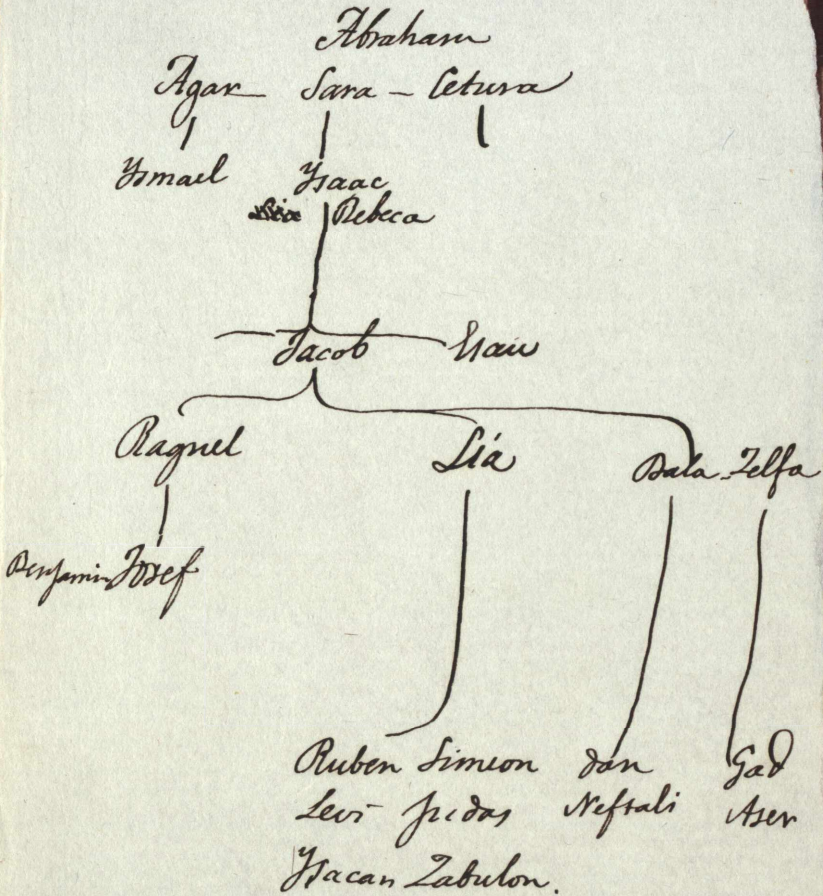 Abraham
Agar - Sara - Cetura
Ysmael Ysaac
Rebeca
Jacob Esau
Raquel Lia Bala - Zelfa
Benjamin Josef
Ruben Simeon dan Gad
Levi judas Neftali Aser
Ysacar Zabulon.